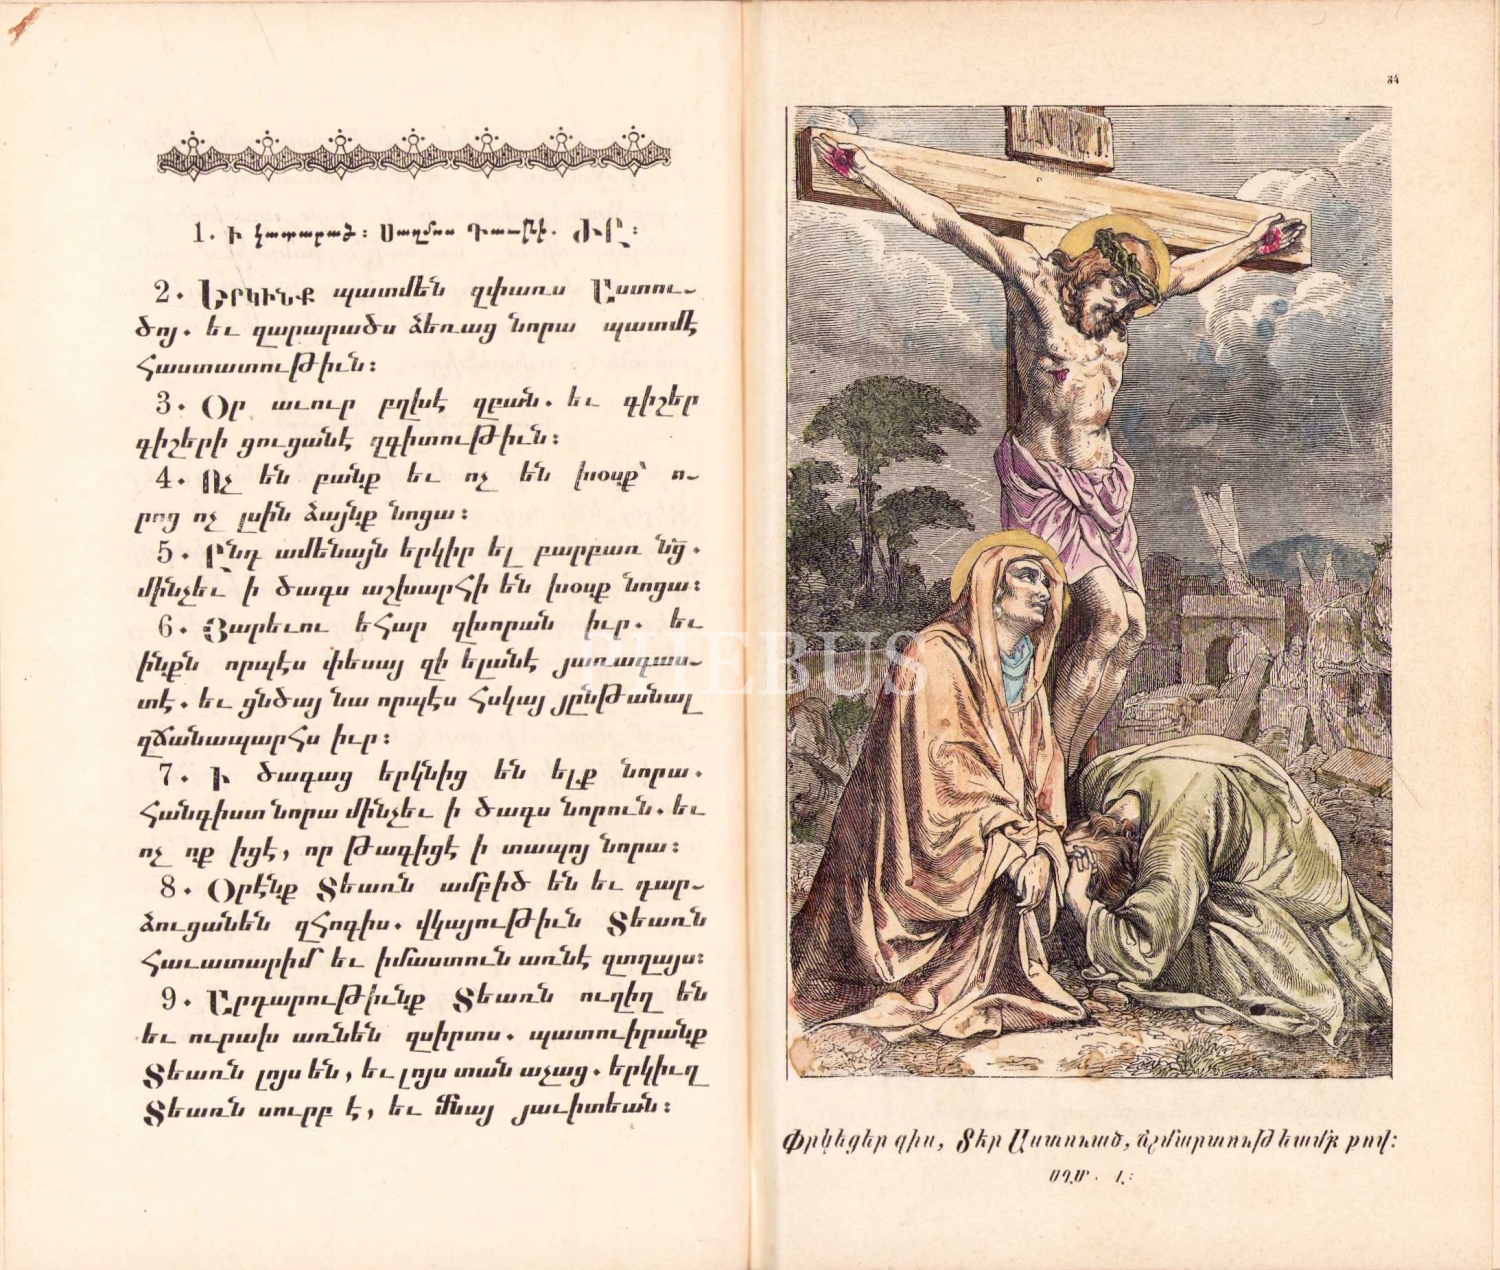 1. Ի կատարած։ Սաղմոս Դաւթի. ԺԸ։
2. ԵՐԿԻՆՔ պատմեն զփառս Աստու-
ծոյ. եւ զարարածս ձեռաց նորա պատմէ
հաստատութիւն։
3. Օր աւուր բղխէ զբան. եւ գիշեր
գիշերի ցուցանէ զգիտութիւն։
4. Ոչ են բանք եւ ոչ են խօսք՝ ո-
րոց ոչ լսին ձայնք նոցա։
5. Ընդ ամենայն երկիր ել բարբառ նց.
մինչեւ ի ծագս աշխարհի են խօսք նոցա։
6. Յարեւու եհար զխորան իւր. եւ
ինքն որպէս փեսայ զի ելանէ յառագաս-
տէ. եւ ցնծայ նա որպէս հսկայ յընթանալ
զճանապարհս իւր։
7. Ի ծագաց երկնից են ելք նորա.
հանգիստ նորա մինչեւ ի ծագս նորուն. եւ
ոչ ոք իցէ, որ թագիցէ ի տապոյ նորա։
8. Օրէնք Տեառն ամբիծ են եւ դար-
ձուցանեն զհոգիս. վկայութիւն Տեառն
հաւատարիմ եւ իմաստուն առնէ զտղայս։
9. Արդարութիւնք Տեառն ուղիղ են
եւ ուրախ առնեն զսիրտս. պատուիրանք
Տեառն լոյս են, եւ լոյս տան աչաց. երկիւղ
Տեառն սուրբ է, եւ մնայ յաւիտեան։
34
I.N.R.I.
PHEBUS
Փրկեցեր զիս, Տէր Աստուած, ճշմարտութեամբ քով։
ՍՂՄ. Լ։